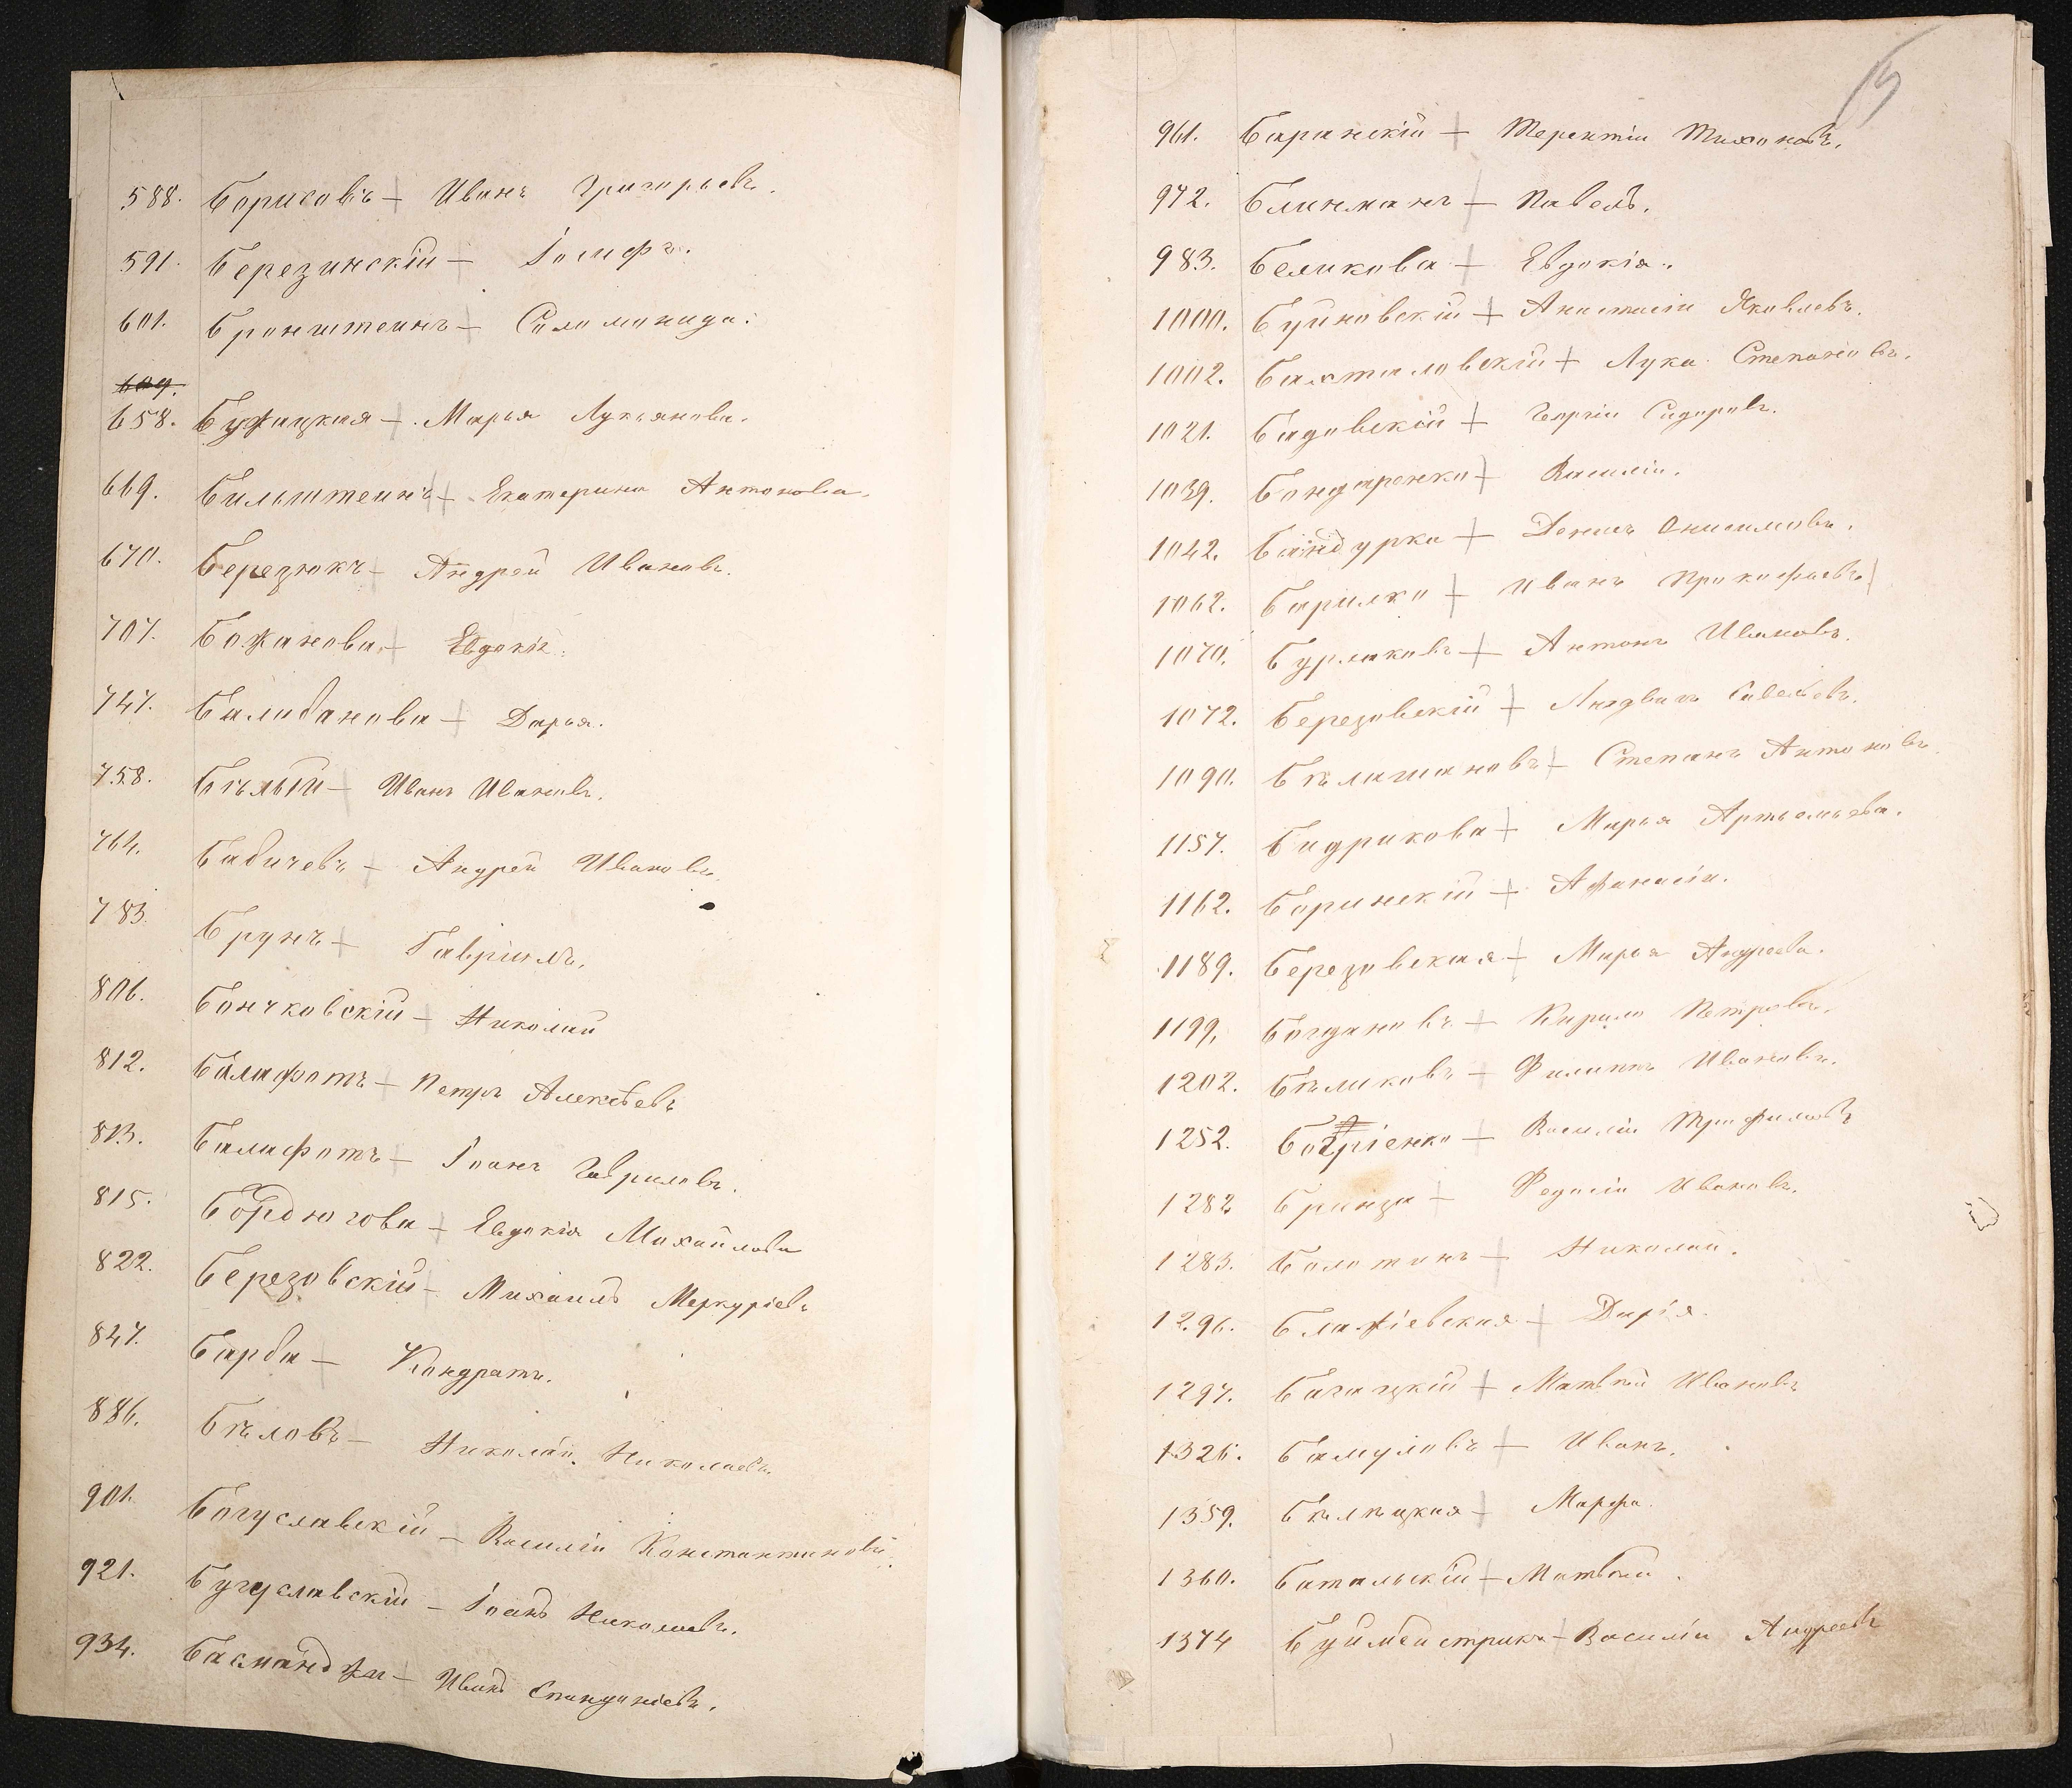 588. Борисовъ — Иванъ Григорьевъ.
591. Березинскій — Іосифъ.
601. Бронштеинъ — Саломонида.
609.
658. Бужацкая — Марья Лукьянова.
669. Бильштеинъ — Екатерина Антонова.
670. Березюкъ — Андрей Ивановъ.
707. Божанова — Евдокія.
747. Балабанова — Дарья.
758. Бѣлый — Иванъ Ивановъ.
764. Бабичевъ — Андрей Ивановъ.
783. Брунъ — Гавріилъ.
806. Бончковскій — Николай
812. Балафотъ — Петръ Алексѣевъ
813. Балафотъ — Іоанъ Гавриловъ.
815. Бордюгова — Евдокія Михайлова
822. Березовскій — Михаилъ Меркуріевъ
847. Барба — Кондратъ.
886. Бѣловъ — Николай Николаевъ.
901. Богуславскій — Василій Константиновъ.
921. Бугуславскій — Іоанъ Николаевъ.
934. Басманджи — Иванъ Спиридоніевъ.
15
961. Баранскій — Терентій Тихоновъ.
972. Блинманъ — Павелъ.
983. Беликова — Евдокія.
1000. Буйновскій — Анастасій Яковлевъ.
1002. Бахталовскій — Лука Степановъ.
1021. Бадовскій — Георгій Сидоровъ.
1039. Бондаренко — Василій.
1042. Бандурка — Денисъ Онисимовъ.
1062. Барилко — Иванъ Прокофьевъ
1070. Бурлаковъ — Антонъ Ивановъ.
1072. Березовскій — Савельевъ.
1090. Бѣлашановъ — Степанъ Антоновъ
1157. Бидрикова — Марья Артемьева.
1162. Боринскій — Афанасій.
1189. Березовская — Марья Андреева.
1199. Богдановъ — Кирило Петровъ.
1202. Бѣликовъ — Филиппъ Ивановъ.
1252. Василій Трофимовъ
1282 Бринза — Федосій Ивановъ.
1283. Болотинъ — Николай.
1296. Блажіевская — Дарія.
1297. Багацкій — Матвѣй Ивановъ
1326. Бамуловъ — Иванъ.
1359. Бѣлецкая — Марфа.
1360. Батальскій — Матвѣй.
1374 Буймейстрикъ — Василій Андреевъ